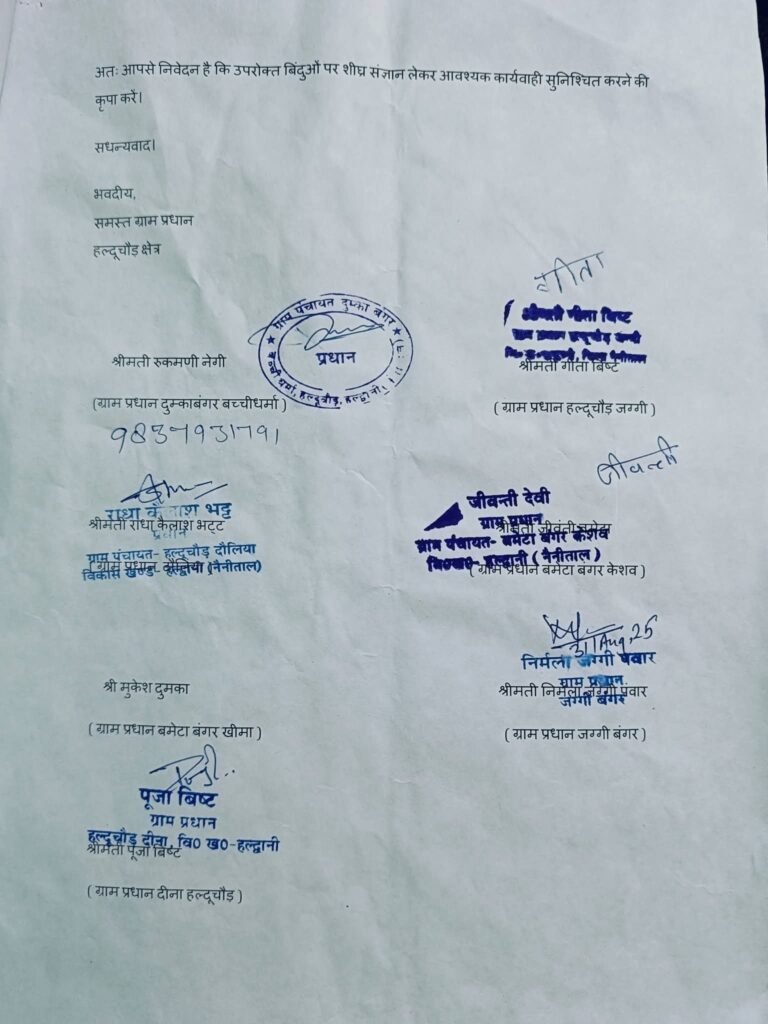 अतः आपसे निवेदन है कि उपरोक्त बिंदुओं पर शीघ्र संज्ञान लेकर आवश्यक कार्यवाही सुनिश्चित करने की
कृपा करें।
सधन्यवाद।
भवदीय,
समस्त ग्राम प्रधान
हल्दूचौड़ क्षेत्र
गीता
ग्राम पंचायत दुम्का बंगर
प्रधान
बच्ची धर्मा, हल्दूचौड़, हल्द्वानी
श्रीमती गीता बिष्ट
श्रीमती रुकमणी नेगी
श्रीमती गीता बिष्ट
(ग्राम प्रधान दुमकाबंगर बच्चीधर्मा )
( ग्राम प्रधान हल्दूचौड़ जग्गी )
9837931791
जीवन्ती
राधा कैलाश भट्ट
श्रीमती राधा कैलाश भट्ट
प्रधान
ग्राम पंचायत- हल्दूचौड़ दौलिया
विकास खण्ड- हल्द्वानी (नैनीताल)
(ग्राम प्रधान दौलिया )
जीवन्ती देवी
ग्राम प्रधान
श्रीमती जीवंती बमेटा
ग्राम पंचायत- बमेटा बंगर केशव
वि०ख०- हल्द्वानी ( नैनीताल )
( ग्राम प्रधान बमेटा बंगर केशव )
31 Aug, 25
निर्मला जग्गी पंवार
ग्राम प्रधान
जग्गी बंगर
श्री मुकेश दुमका
श्रीमती निर्मला जग्गी पंवार
( ग्राम प्रधान बमेटा बंगर खीमा )
( ग्राम प्रधान जग्गी बंगर )
पूजा बिष्ट
ग्राम प्रधान
हल्दूचौड़ दीना, वि० ख०-हल्द्वानी
श्रीमती पूजा बिष्ट
( ग्राम प्रधान दीना हल्दूचौड़ )